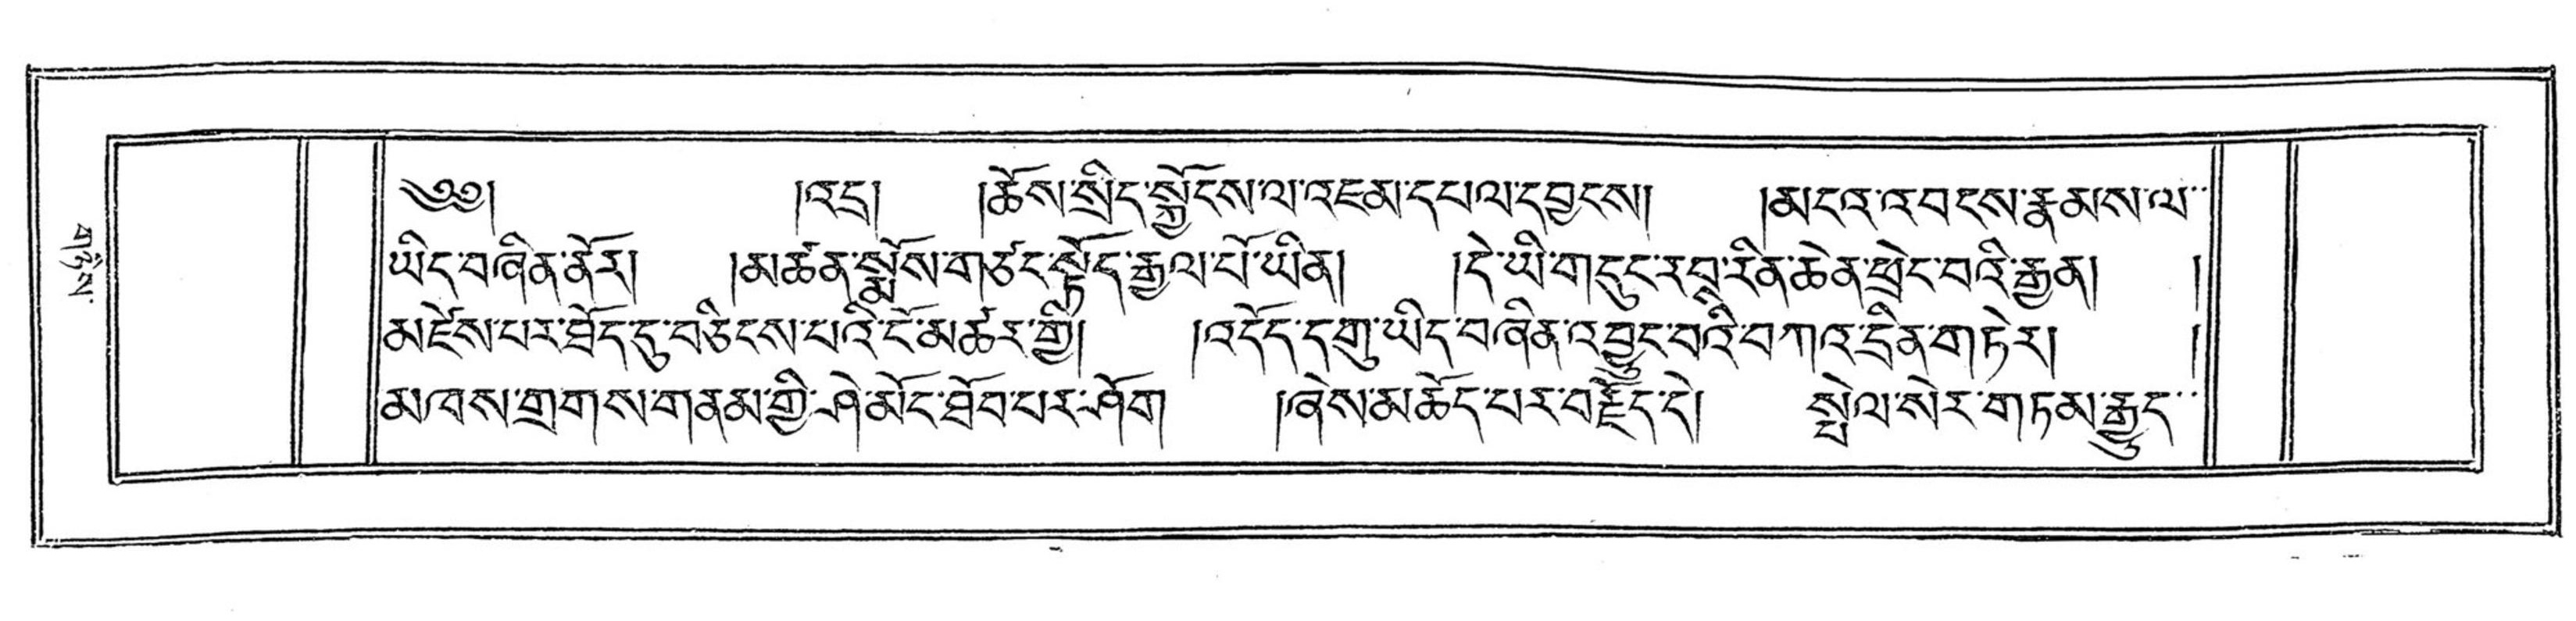 གཉིས་
༄༅། །འདྲ། །ཆོས་སྲིད་སྐྱོངས་ལ་འཇམ་དཔལ་དབྱངས། །མངའ་འབངས་རྣམས་ལ་
ཡིད་བཞིན་ནོར། །མཚན་སྨོས་གཙང་སྟོད་རྒྱལ་པོ་ཡིན། །དེ་ཡི་གདུང་རབྲ་རིན་ཆེན་ཕྲེང་བའི་རྒྱན། །
མཛེས་པར་ཐོད་དུ་བཅིངས་པའི་ངོ་མཚར་གྱི། །འདོད་དགུ་ཡིད་བཞིན་འབྱུང་བའི་བཀའ་དྲིན་གཏེར། །
མཁས་གྲགས་གནམ་གྱི་ཤེ་མོང་ཐོབ་པར་ཤོག །ཞེས་མཆོད་པར་བརྗོད་དེ། སྤེལ་སེར་གཏམ་རྒྱུད་